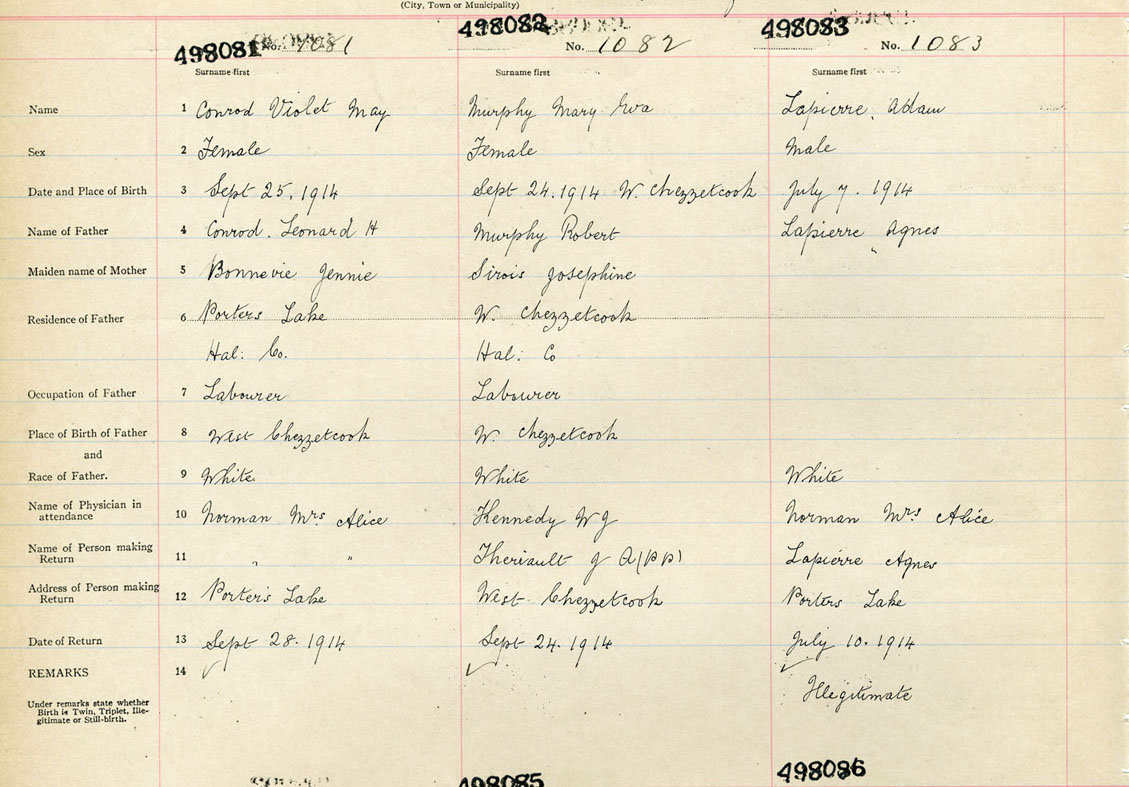 (City, Town or Municipality)
498081 No. 1081 498082 No. 1082 498083 No. 1083
Surname first Surname first Surname first
Name 1 Conrod Violet May Murphy Mary Eva Lapierre, Adam
Sex 2 Female Female Male
Date and Place of Birth 3 Sept 25. 1914 Sept 24. 1914 W. Chezzetcook July 7. 1914
Name of Father 4 Conrod. Leonard H Murphy Robert Lapierre Agnes
Maiden name of Mother 5 Bonnevie Jennie Sirois Josephine "
Residence of Father 6 Porters Lake W. Chezzetcook
Hal: Co. Hal: Co
Occupation of Father 7 Labourer Labourer
Place of Birth of Father 8 West Chezzetcook W. Chezzetcook
and
Race of Father. 9 White White White
Name of Physician in
attendance 10 Norman Mrs Alice Kennedy W J Norman Mrs Alice
Name of Person making
Return 11 " " Theriault J A (PP) Lapierre Agnes
Address of Person making
Return 12 Porters Lake West Chezzetcook Porters Lake
Date of Return 13 Sept 28. 1914 Sept 24. 1914 July 10. 1914
REMARKS 14 ✓ ✓ ✓
Illegitimate
Under remarks state whether
Birth is Twin, Triplet, Ille-
gitimate or Still-birth.
498085 498086